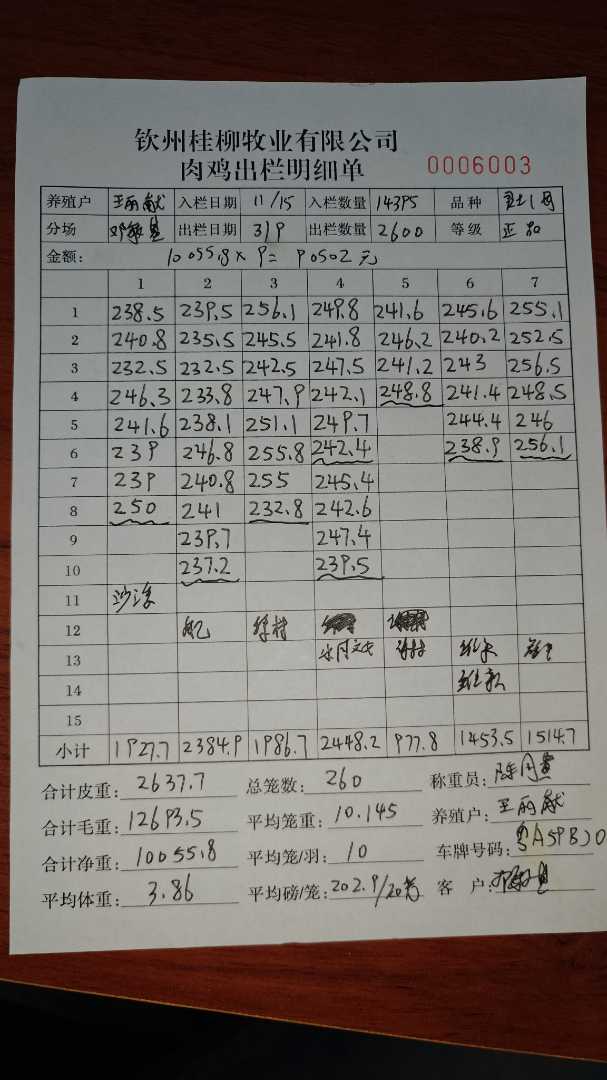 钦州桂柳牧业有限公司
肉鸡出栏明细单 0006003
养殖户 王丽献 入栏日期 11/15 入栏数量 14395 品种
分场 出栏日期 3/9 出栏数量 2600 等级 正品
金额: 10055.8×9=90502元
1 2 3 4 5 6 7
1 238.5 239.5 256.1 249.8 241.6 245.6 255.1
2 240.8 235.5 245.5 241.8 246.2 240.2 252.5
3 232.5 232.5 242.5 247.5 241.2 243 256.5
4 246.3 233.8 247.9 242.1 248.8 241.4 248.5
5 241.6 238.1 251.1 249.7 244.4 246
6 239 246.8 255.8 242.4 238.9 256.1
7 239 240.8 255 245.4
8 250 241 232.8 242.6
9 239.7 247.4
10 237.2 239.5
11
12
13
14
15
小计 1927.7 2384.9 1986.7 2448.2 977.8 1453.5 1514.7
合计皮重: 2637.7 总笼数: 260 称重员:
合计毛重: 12693.5 平均笼重: 10.145 养殖户: 王丽献
合计净重: 10055.8 平均笼/羽: 10 车牌号码:
平均体重: 3.86 平均磅/笼: 202.9/20 客 户: